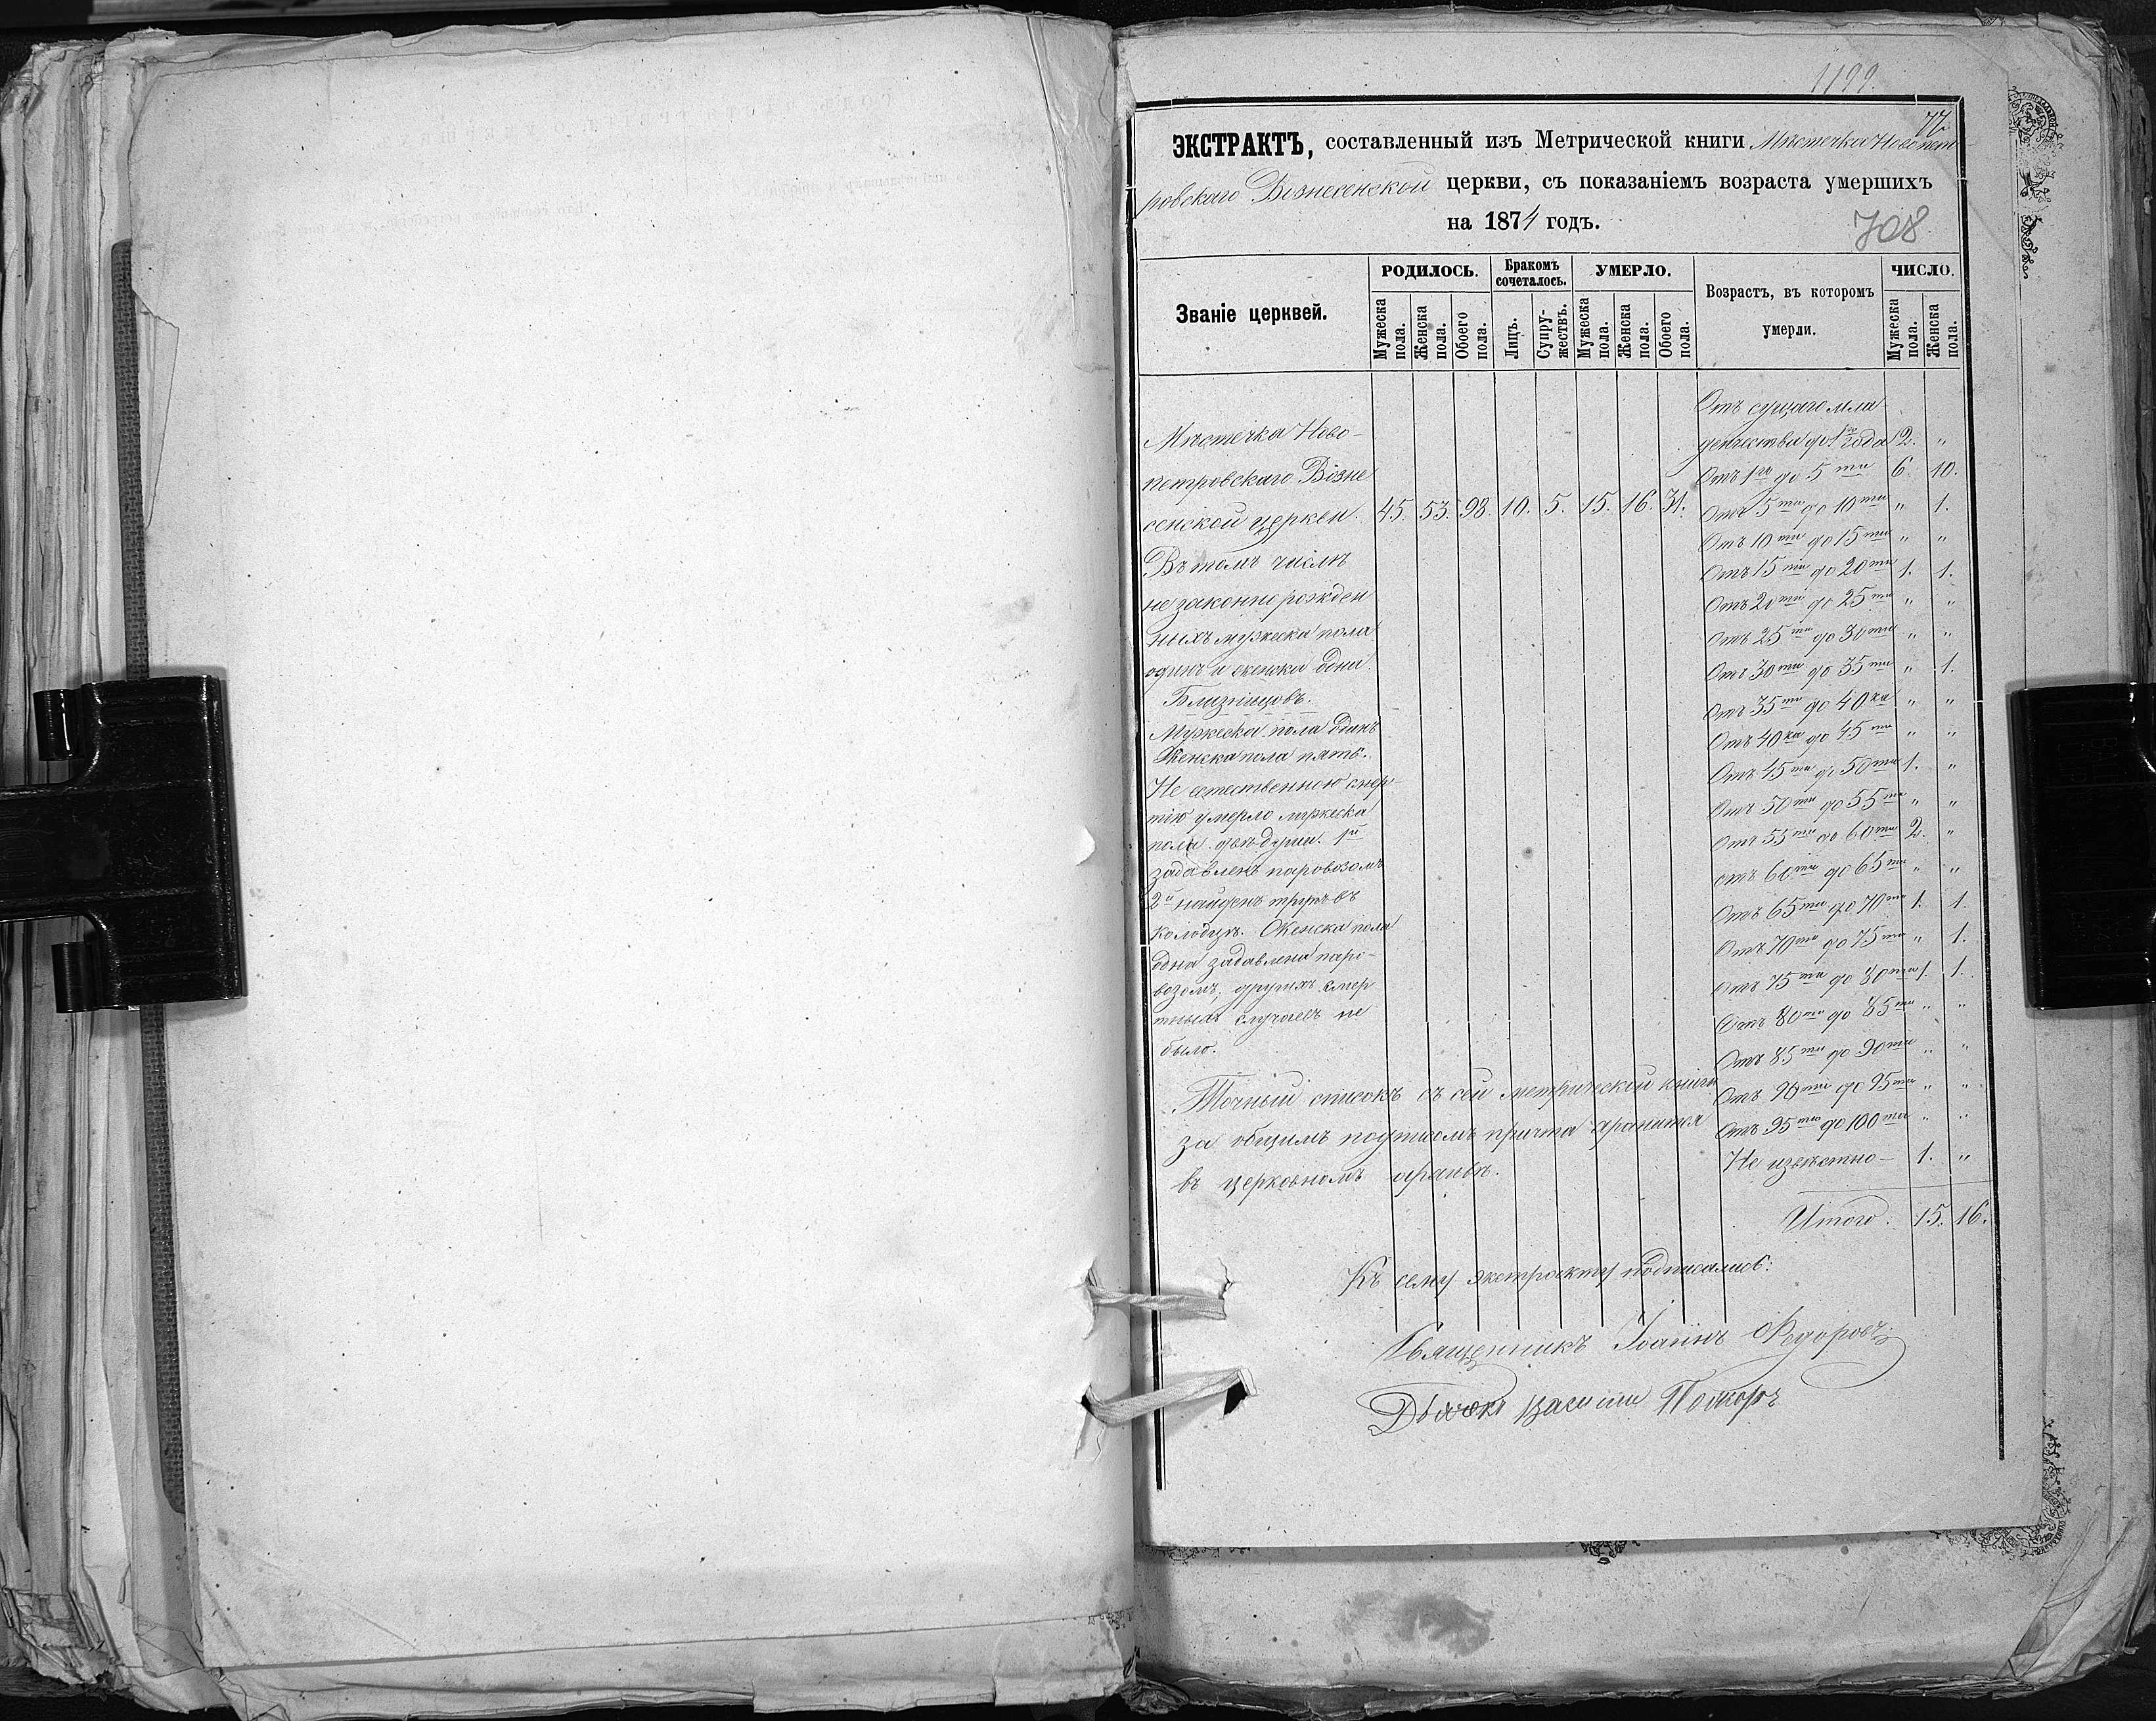 1199.
77
ЭКСТРАКТЪ, составленный изъ Метрической книги Мѣстечка Новопет-
ровскаго Вознесенской церкви, съ показаніемъ возраста умершихъ
на 1874 годъ.
708
Званіе церквей.
РОДИЛОСЬ.
Мужеска пола.
Женска пола.
Обоего пола.
Бракомъ сочеталось.
Лицъ.
Супружествъ.
УМЕРЛО.
Мужеска пола.
Женска пола.
Обоего пола.
Возрастъ, въ которомъ
умерли.
ЧИСЛО.
Мужеска пола.
Женска пола.
Мѣстечка Ново-
петровскаго Возне
сенской церкви. 45. 53. 98. 10. 5. 15. 16. 31.
Въ томъ числѣ
не законнорожден
ныхъ мужеска пола
одинъ и женска одна.
Близнецовъ.
Мужеска пола одинъ
Женска пола пять.
Не естественною смер-
тію умерло мужеска
пола двѣ души. 1й
задавленъ паровозомъ
2й найденъ трупъ въ
колодцѣ. Женска пола
одна задавлена паро-
возомъ, другихъ смер
тныхъ случаевъ не
было.
Точный списокъ съ сей метрической книги
за общимъ подписомъ причта хранится
въ церковномъ архивѣ.
Отъ сущаго мла-
денчества до 1го года 2. "
Отъ 1го до 5ти 6. 10.
Отъ 5ти до 10ти " 1.
Отъ 10ти до 15ти " "
Отъ 15ти до 20ти 1. 1.
Отъ 20ти до 25ти " "
Отъ 25ти до 30ти " "
Отъ 30ти до 35ти " 1.
Отъ 35ти до 40ка " "
Отъ 40ка до 45ти " "
Отъ 45ти до 50ти 1. "
Отъ 50ти до 55ти " "
Отъ 55ти до 60ти 2. "
отъ 60ти до 65ти " "
Отъ 65ти до 70ти 1. 1.
Отъ 70ти до 75ти " 1.
Отъ 75ти до 80ти 1. 1.
Отъ 80ти до 85ти " "
Отъ 85ти до 90ти " "
Отъ 90ти до 95ти " "
Отъ 95ти до 100та " "
Не извѣстно— 1. "
Итого. 15. 16.
Къ сему экстракту подписались:
Священникъ Іоаннъ Ѳедоровъ
Дьячокъ Василій